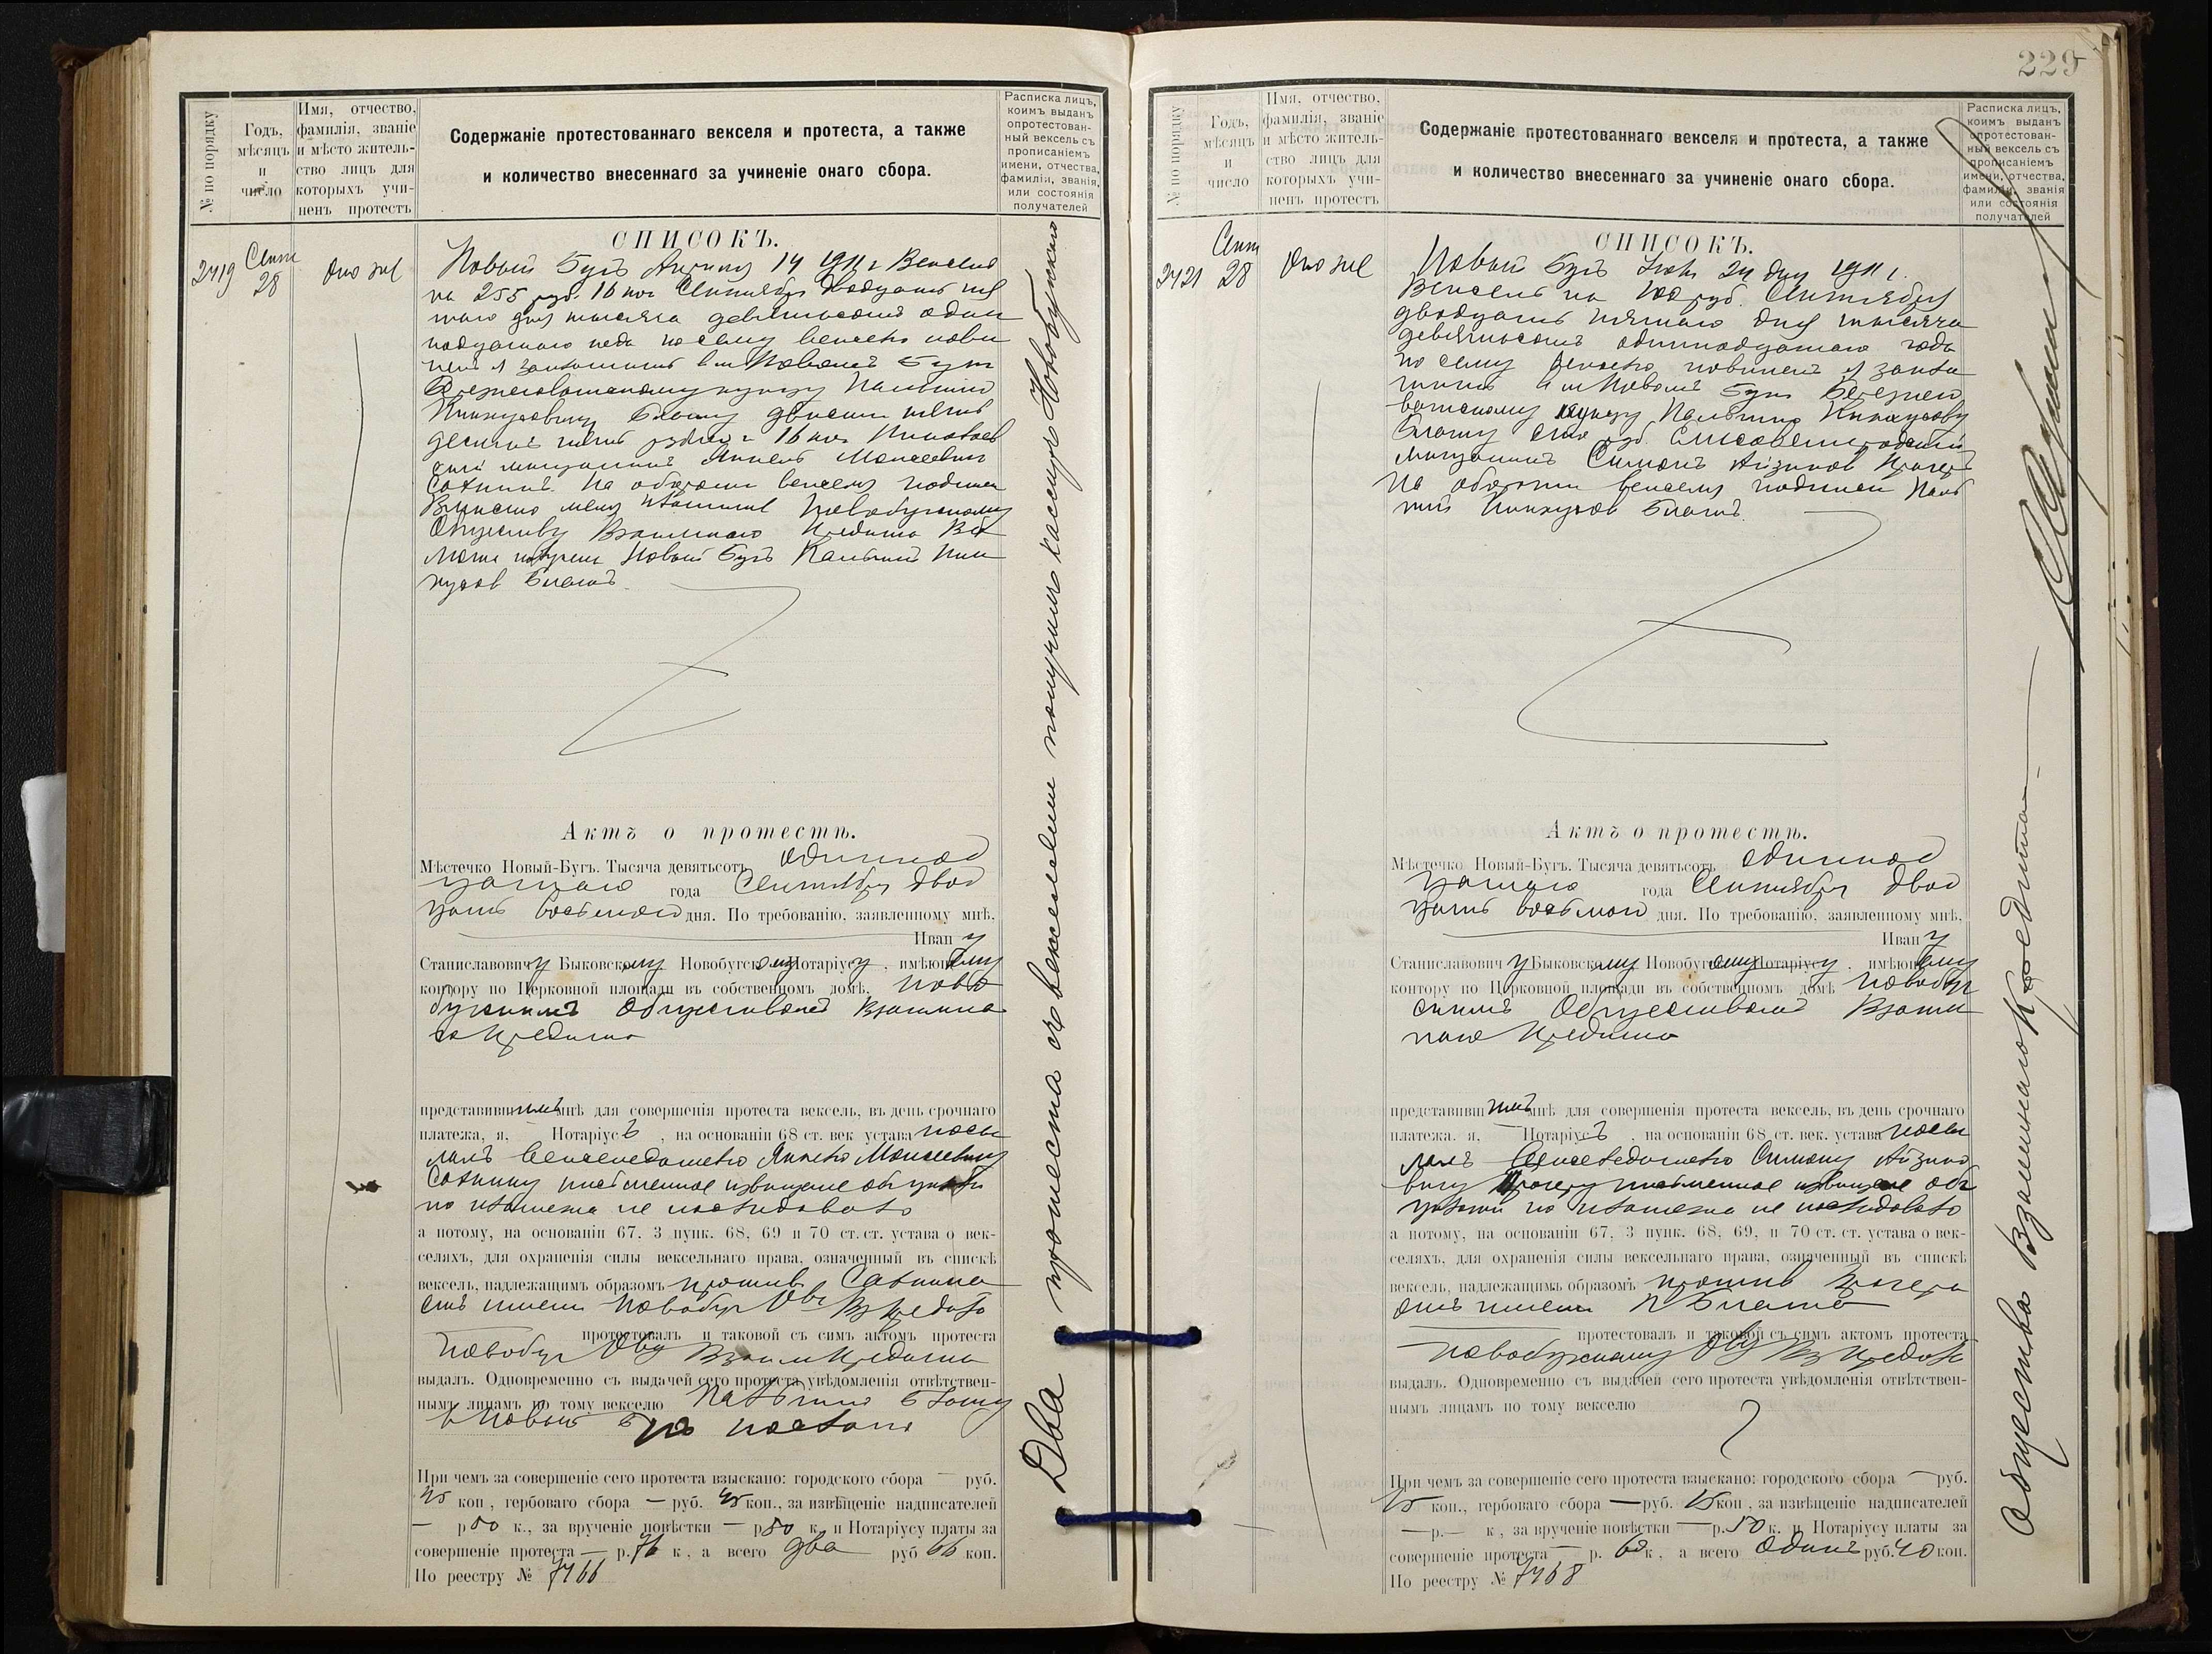 № по порядку
Годъ, мѣсяцъ и число
Имя, отчество, фамилія, званіе и мѣсто житель- ство лицъ для которыхъ учи- ненъ протестъ
Содержаніе протестованнаго векселя и протеста, а также
и количество внесеннаго за учиненіе онаго сбора.
Расписка лицъ, коимъ выданъ опротестован- ный вексель съ прописаніемъ имени, отчества, фамиліи, званія, или состоянія получателей
СПИСОКЪ.
2419 Сент 28 Оно же
Новый Бугъ 14 1911 г Вексель
на 255 руб. 16 коп Сентября двадцать пя
таго дня тысяча девятьсотъ один
надцатаго года по сему векселю пови
ненъ я заплатить в м Новомъ Буге
Березнеговатскому купцу
двести пять
десятъ пять рублей 16 коп Николаев
скій мещанинъ Моисеевич
На обороте векселя надписи
Вместо меня платите Новобугскому
Обществу Взаимнаго Кредита
Новый Бугъ
Актъ о протестѣ.
Мѣстечко Новый-Бугъ. Тысяча девятьсотъ одиннад
цатаго года Сентября двад
цать восьмого дня. По требованію, заявленному мнѣ,
Ивану
Станиславовичу Быковскому Новобугскому Нотаріусу, имѣющему
контору по Церковной площади въ собственномъ домѣ, Ново
бугскимъ Обществомъ Взаимна
го Кредита
представившимъ мнѣ для совершенія протеста вексель, въ день срочнаго
платежа, я, Нотаріусъ, на основаніи 68 ст. век устава посы
лалъ векселедателю Моисеевичу
письменное извещение
но платежа не последовало
а потому, на основаніи 67, 3 пунк. 68, 69 и 70 ст. ст. устава о век-
селяхъ, для охраненія силы вексельнаго права, означенный въ спискѣ
вексель, надлежащимъ образомъ противъ
отъ имени Новобуг Ова Вз Кредита
протестовалъ и таковой съ симъ актомъ протеста
Новобуг Ову Взаим Кредита
выдалъ. Одновременно съ выдачей сего протеста увѣдомленія отвѣтствен-
нымъ лицамъ по тому векселю
в Новый Буг
При чемъ за совершеніе сего протеста взыскано: городского сбора — руб.
45 коп, гербоваго сбора — руб. 45 коп., за извѣщеніе надписателей
— р 50 к., за врученіе повѣстки — р 50 к. и Нотаріусу платы за
совершеніе протеста — р. 76 к, а всего два руб 66 коп.
По реестру № 7466
Два протеста съ векселями получилъ кассиръ Новобугскаго
229
№ по порядку
Годъ, мѣсяцъ и число
Имя, отчество, фамилія, званіе и мѣсто житель- ство лицъ для которыхъ учи- ненъ протестъ
Содержаніе протестованнаго векселя и протеста, а также
и количество внесеннаго за учиненіе онаго сбора.
Расписка лицъ, коимъ выданъ опротестован- ный вексель съ прописаніемъ имени, отчества, фамиліи, званія или состоянія получателей
СПИСОКЪ.
2421 Сент 28 Оно же
Новый Бугъ 24 дня 1911 г.
Вексель на 100 руб. Сентября
двадцать пятаго дня тысяча
девятьсотъ одиннадцатаго года
по сему векселю повиненъ я запла
тить в м Новомъ Буге Березнего
ватскому купцу
сто руб. Елисаветградскій
мещанинъ Симонъ
На обороте векселя надписи
Актъ о протестѣ.
Мѣстечко Новый-Бугъ. Тысяча девятьсотъ одиннад
цатаго года Сентября двад
цать восьмого дня. По требованію, заявленному мнѣ,
Ивану
Станиславовичу Быковскому Новобугскому Нотаріусу, имѣющему
контору по Церковной площади въ собственномъ домѣ Новобуг
скимъ Обществомъ Взаим
наго Кредита
представившимъ мнѣ для совершенія протеста вексель, въ день срочнаго
платежа. я, Нотаріусъ, на основаніи 68 ст. век. устава посы
лалъ векселедателю Симону
письменное извещение
но платежа не последовало
а потому, на основаніи 67, 3 пунк. 68, 69, и 70 ст. ст. устава о век-
селяхъ, для охраненія силы вексельнаго права, означенный въ спискѣ
вексель, надлежащимъ образомъ противъ
отъ имени
протестовалъ и таковой съ симъ актомъ протеста
Новобугскому Ову Вз Кредита
выдалъ. Одновременно съ выдачей сего протеста увѣдомленія отвѣтствен-
нымъ лицамъ по тому векселю
При чемъ за совершеніе сего протеста взыскано: городского сбора — руб.
15 коп., гербоваго сбора — руб. 15 коп, за извѣщеніе надписателей
— р. — к, за врученіе повѣстки — р. 50 к. и Нотаріусу платы за
совершеніе протеста — р. 60 к, а всего Одинъ руб. 40 коп.
По реестру № 7468
Общества Взаимнаго Кредита